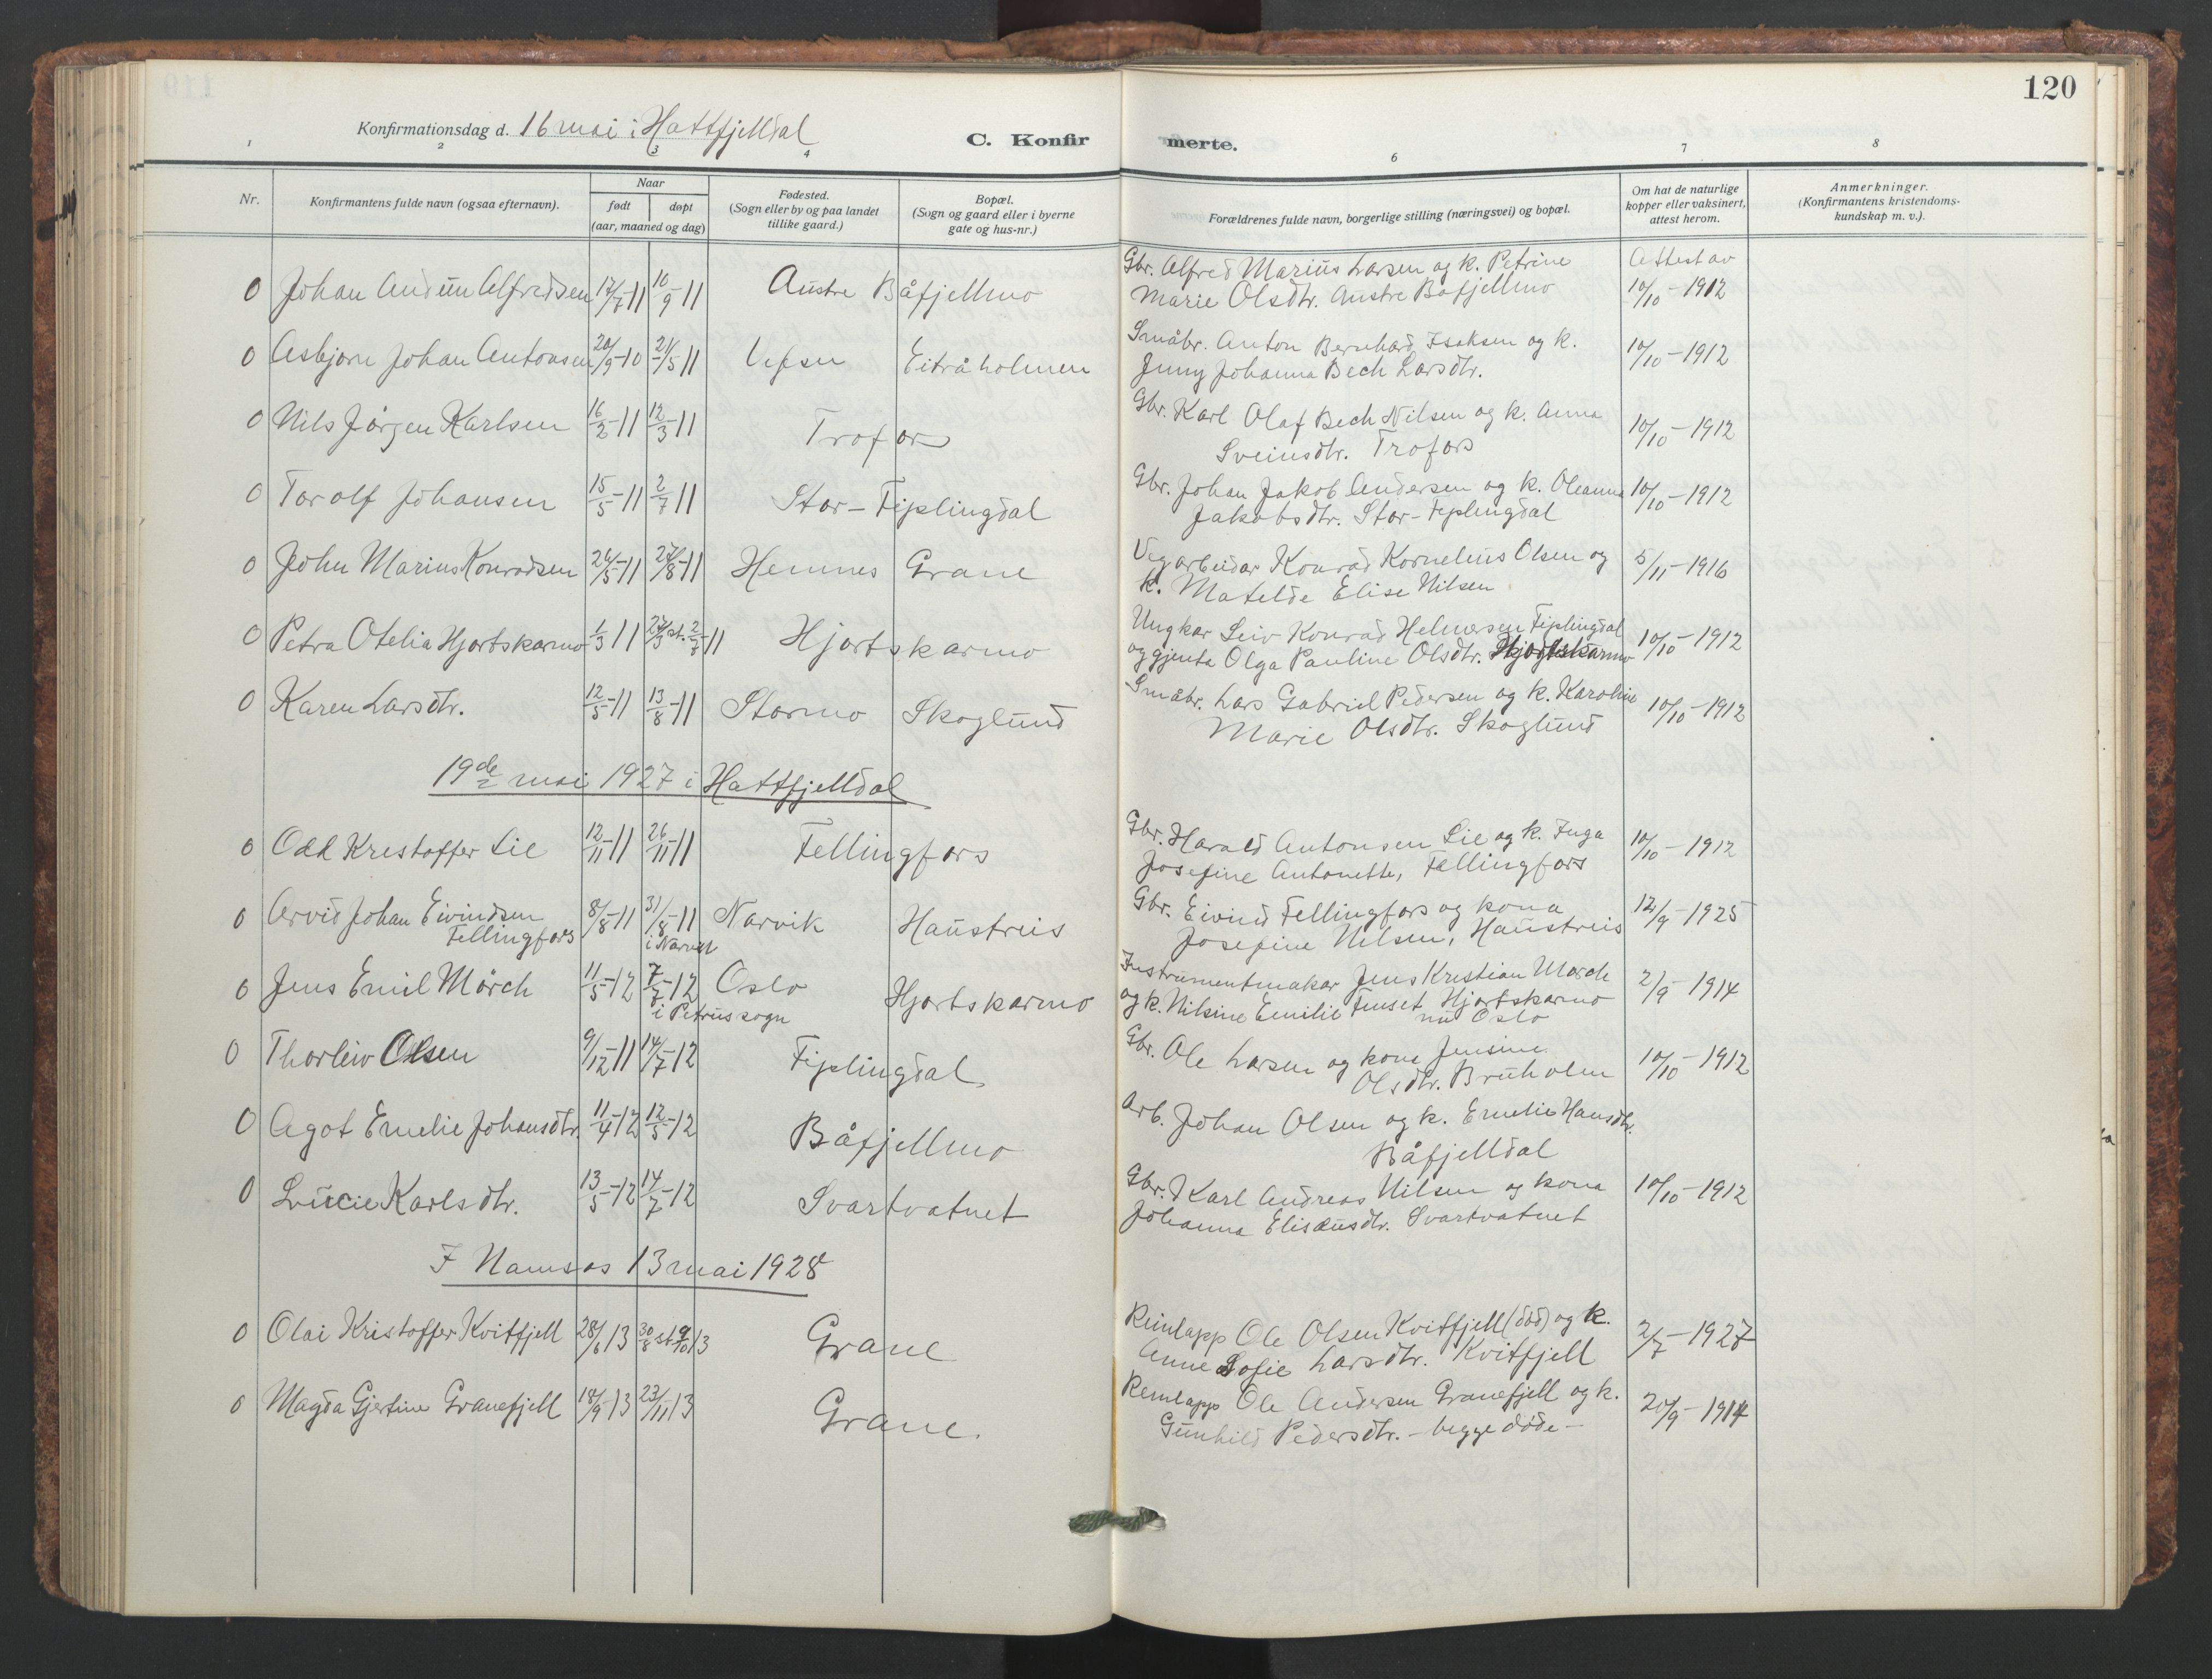 120
Konfirmationsdag d. 16 mai i Hattfjelldal
C. Konfirmerte.
1 2 3 4 6 7 8
Nr.
Konfirmantens fulde navn (ogsaa efternavn).
Naar
født døpt
(aar, maaned og dag)
Fødested.
(Sogn eller by og paa landet
tillike gaard.)
Bopæl.
(Sogn og gaard eller i byerne
gate og hus-nr.)
Forældrenes fulde navn, borgerlige stilling (næringsvei) og bopæl.
Om hat de naturlige
kopper eller vaksinert,
attest herom.
Anmerkninger.
(Konfirmantens kristendoms-
kundskap m. v.).
0 Johan Audun Alfredsen 17/7-11 10/9-11 Austre Båfjellmo Gbr. Alfred Marius Larsen og k. Petrine Attest av
Marie Olsdtr. Austre Båfjellmo 10/10-1912
0 Asbjørn Johan Antonsen 20/9-10 21/5-11 Vefsn Eitråholmen Småbr. Anton Bernhard Isaksen og k. 10/10-1912
Jenny Johanna Bech Larsdtr.
0 Nils Jørgen Karlsen 16/2-11 12/3-11 Trofors Gbr. Karl Olaf Bech Nilsen og k. Anna 10/10-1912
Sveinsdtr. Trofors
0 Torolf Johansen 15/5-11 2/7-11 Stor-Fiplingdal Gbr. Johan Jakob Andersen og k. Oleanna 10/10-1912
Jakobsdtr. Stor-Fiplingdal
0 John Marius Konradsen 26/5-11 27/8-11 Hemnes Grane Vegarbeidar Konrad Kornelius Olsen og 5/11-1916
k. Matelde Elise Nilsen
0 Petra Otelia Hjortskarmo 1/3 11 24/3 st. 2/7-11 Hjortskarmo Ungkar Leiv Konrad Helmersen Fiplingdal 10/10-1912
og gjenta Olga Pauline Olsdtr. Hjortskarmo
0 Karen Larsdtr. 12/5-11 13/8-11 Stormo Skoglund Småbr. Lars Gabriel Pedersen og k. Karoline 10/10-1912
Marie Olsdtr. Skoglund
19de mai 1927 i Hattfjelldal
0 Odd Krestoffer Lie 12/11-11 26/11-11 Fellingfors Gbr. Harald Antonsen Lie og k. Inga 10/10-1912
Josefine Antonette, Fellingfors
0 Arvid Johan Eivindsen 8/8-11 31/8-11 Narvik Haustreis Gbr. Eivind Fellingfors og kona 12/9-1925
Fellingfors i Narvik Josefine Nilsen, Haustreis
0 Jens Emil Mörch 11/5-12 7/7-12 Oslo Hjortskarmo Instrumentmakar Jens Kristian Mörch 2/9-1914
i Petrus sogn og k. Nilsine Emilie Hjortskarmo
nu Oslo
0 Thorleiv Olsen 9/12-11 14/7-12 Fiplingdal Gbr. Ole Larsen og kone Jensine 10/10-1912
Olsdtr. Bruholm
0 Agot Emelie Johansdtr. 11/4-12 12/5-12 Båfjellmo Arb. Johan Olsen og k. Emelie Hansdtr.
Båfjelldal
0 Lucie Karlsdtr. 13/5-12 14/7-12 Svartvatnet Gbr. Karl Andreas Nilsen og kona 10/10-1912
Johanna Elisæusdtr. Svartvatnet
I Namsos 13 mai 1928
0 Olai Kristoffer Kvitfjell 28/6 13 30/8 st 9/10 13 Grane Reinlapp Ole Olsen Kvitfjell (død) og k. 2/7-1927
Anne Sofie Larsdtr. Kvitfjell
0 Magda Gjertine Granefjell 18/9-13 23/11 13 Grane. Reinlapp Ole Andersen Granefjell og k. 20/9-1914
Gunhild Pedersdtr. - begge døde -